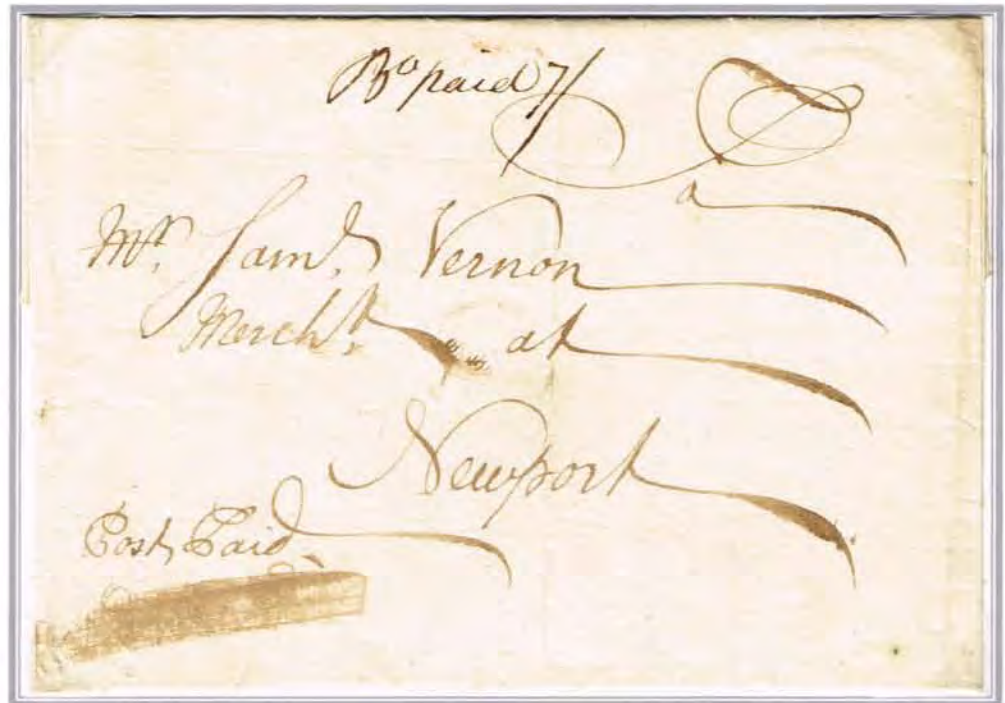 Bo paid 7/
a
Mr. Sam.l Vernon
Merch.t at
Newport
Post Paid